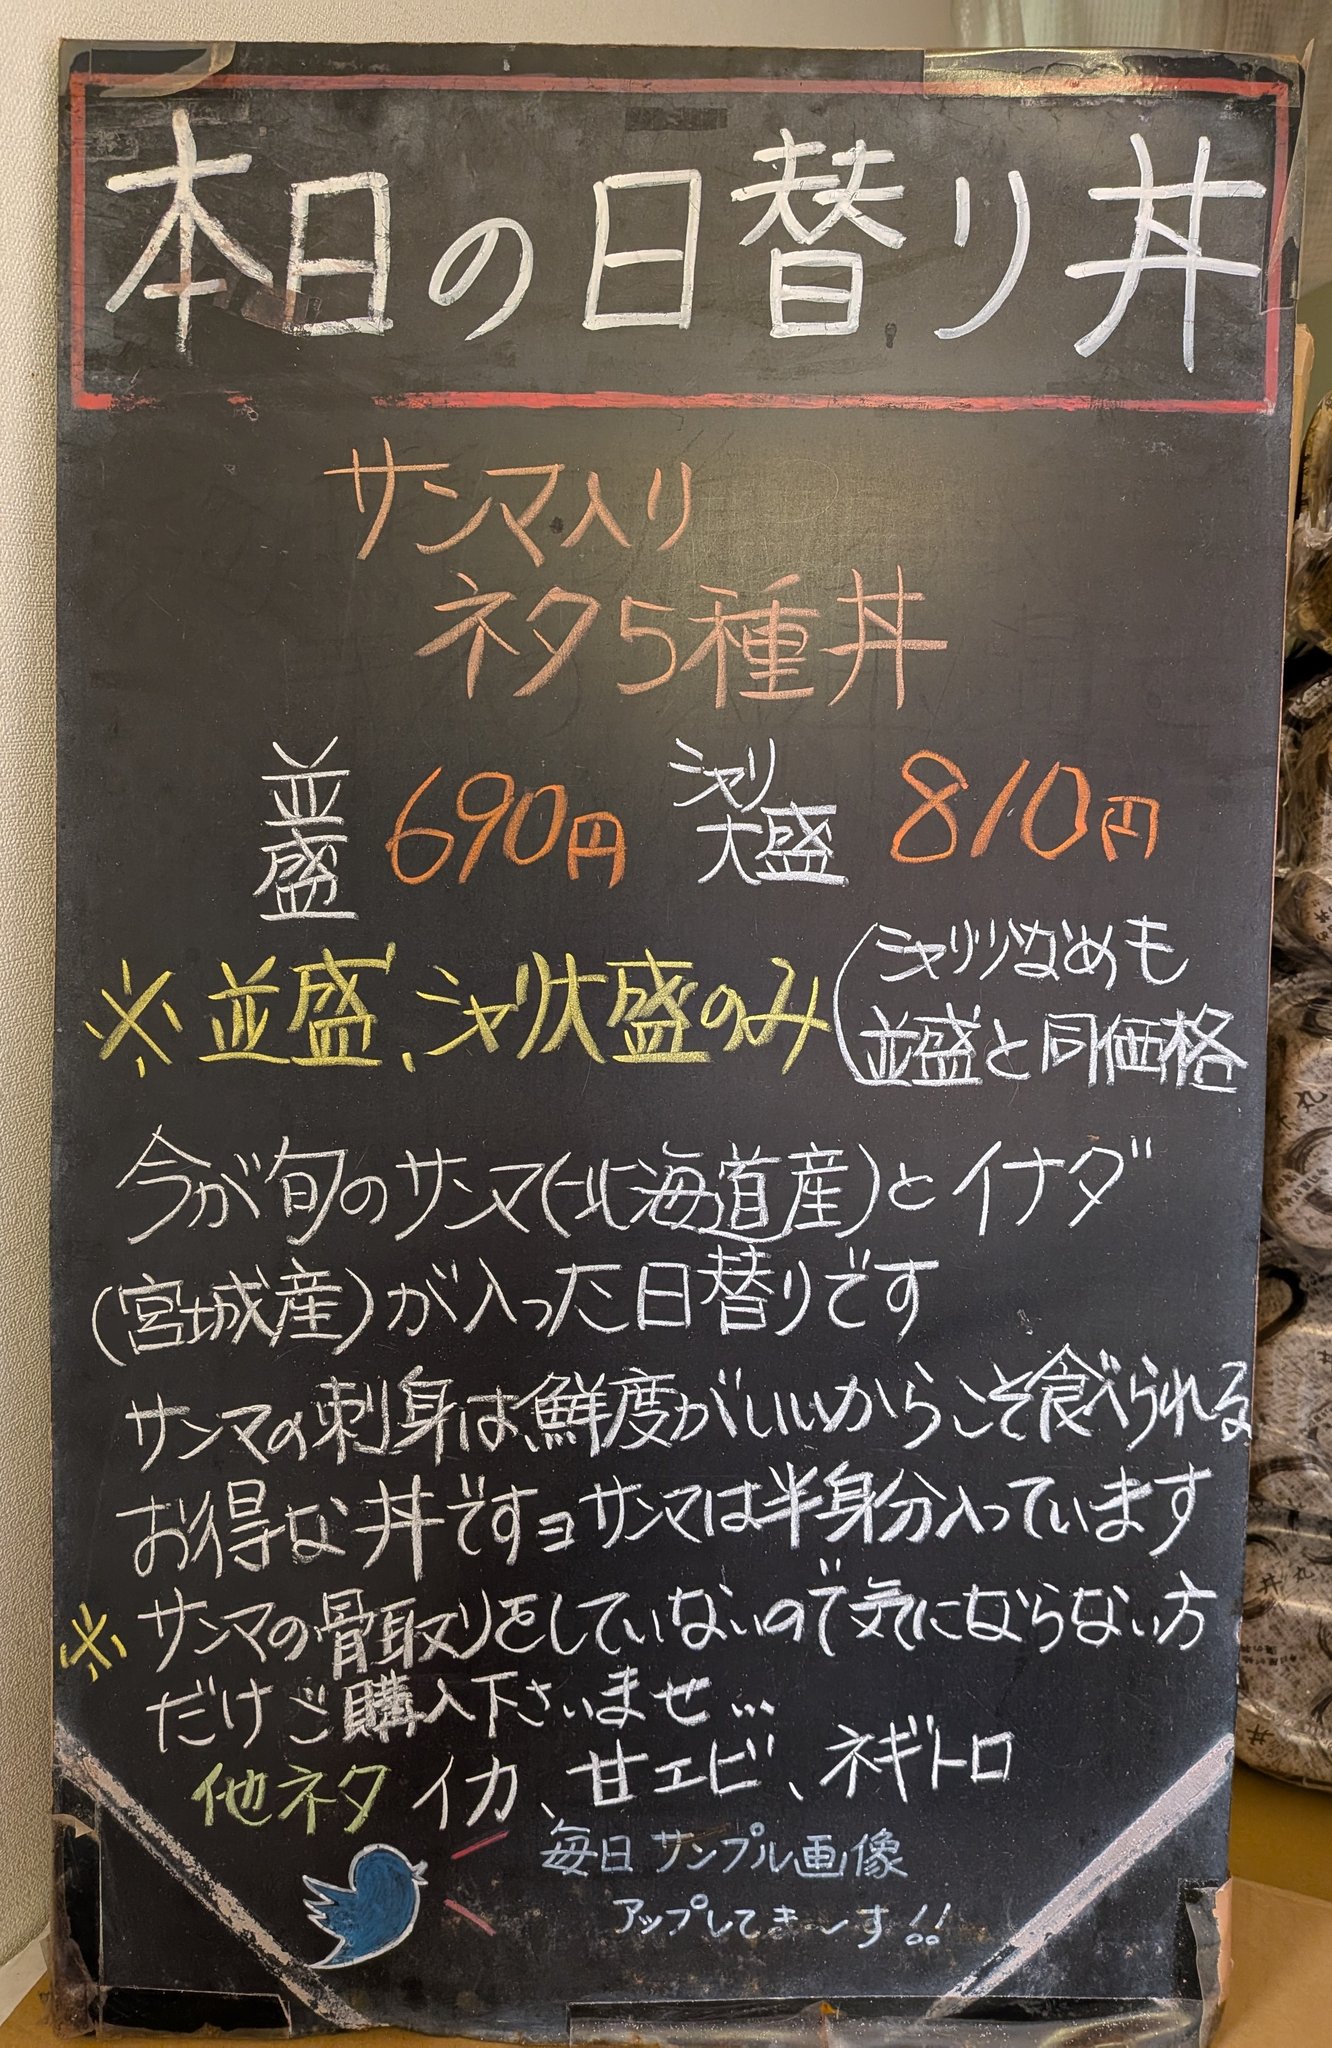 本日の日替り丼
サンマ入り
ネタ5種丼
並盛 690円 シャリ大盛 810円
※並盛、シャリ大盛のみ(シャリ少なめも
並盛と同価格
今が旬のサンマ(北海道産)とイナダ
(宮城産)が入った日替りです
サンマの刺身は鮮度がいいからこそ食べられる
お得な丼ですヨサンマは半身分入っています
※サンマの骨取りをしていないので気にならない方
だけご購入下さいませ...
他ネタ イカ、甘エビ、ネギトロ
毎日サンプル画像
アップしてま〜す!!